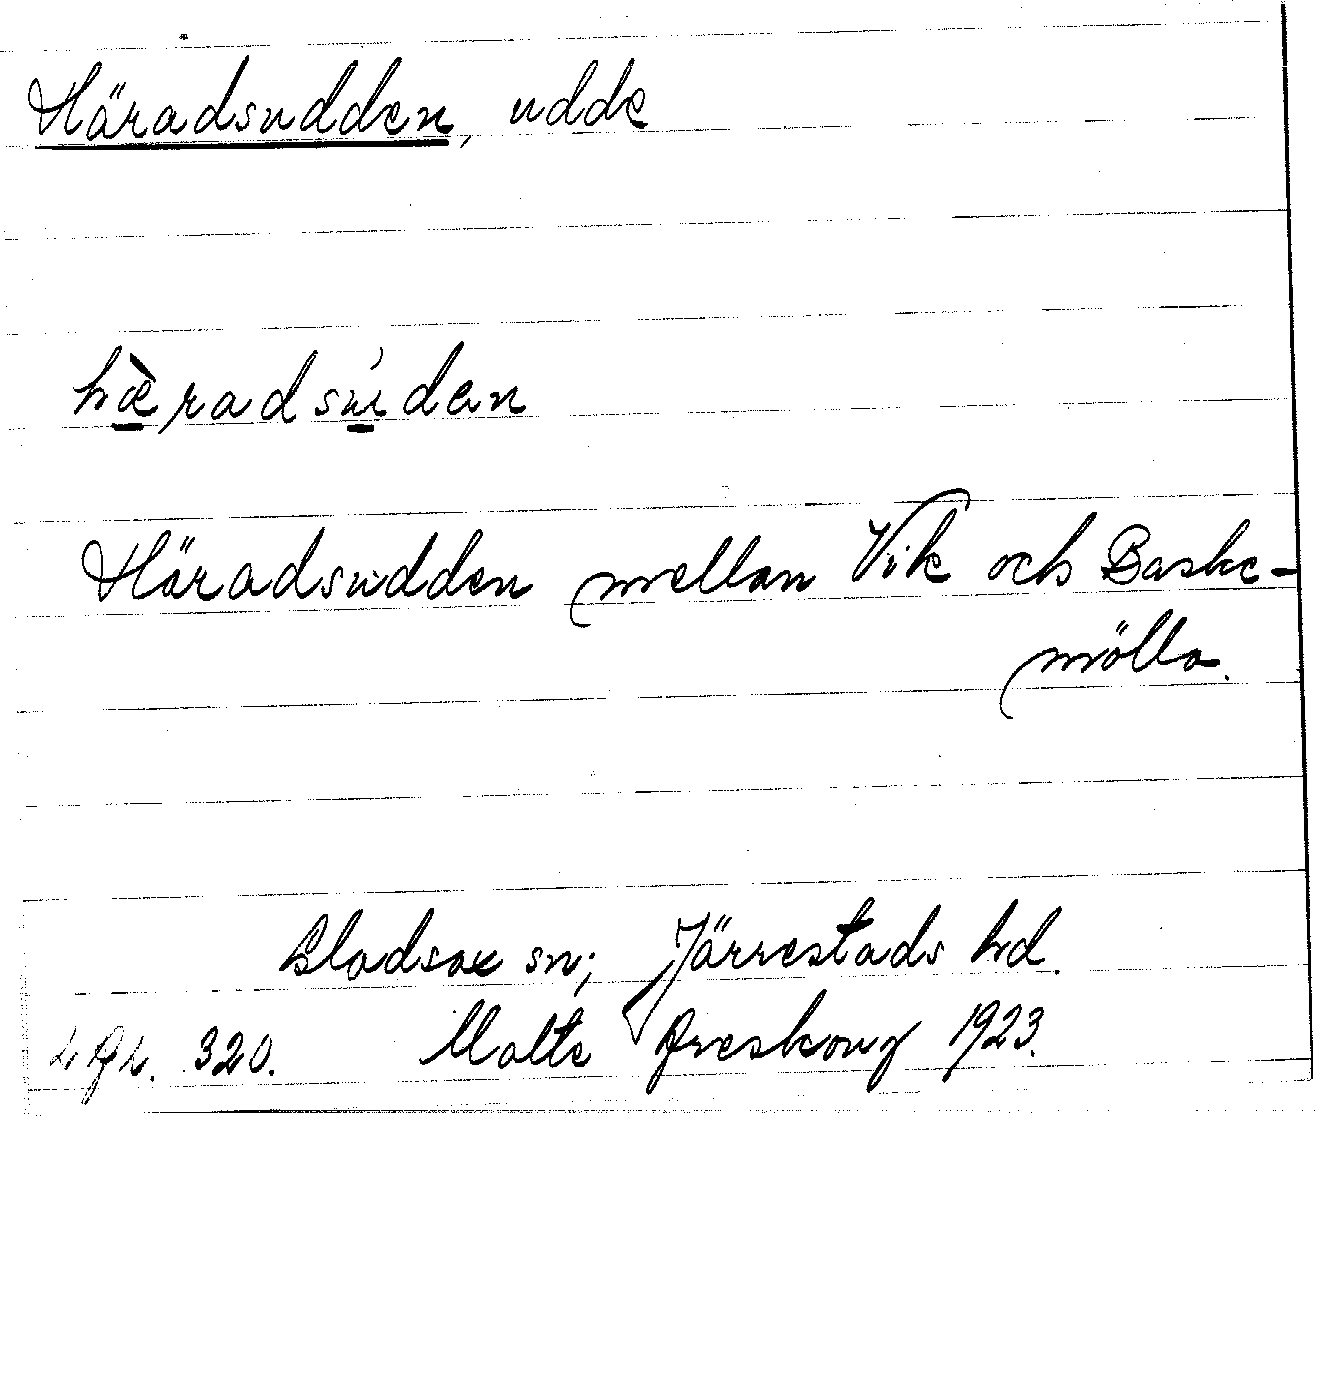 Häradsudden, udde
hæ̀radsúden
Häradsudden mellan Vik och Baske-
mölla.
Gladsax sn; Järrestads hd.
320. Malte Areskoug 1923.